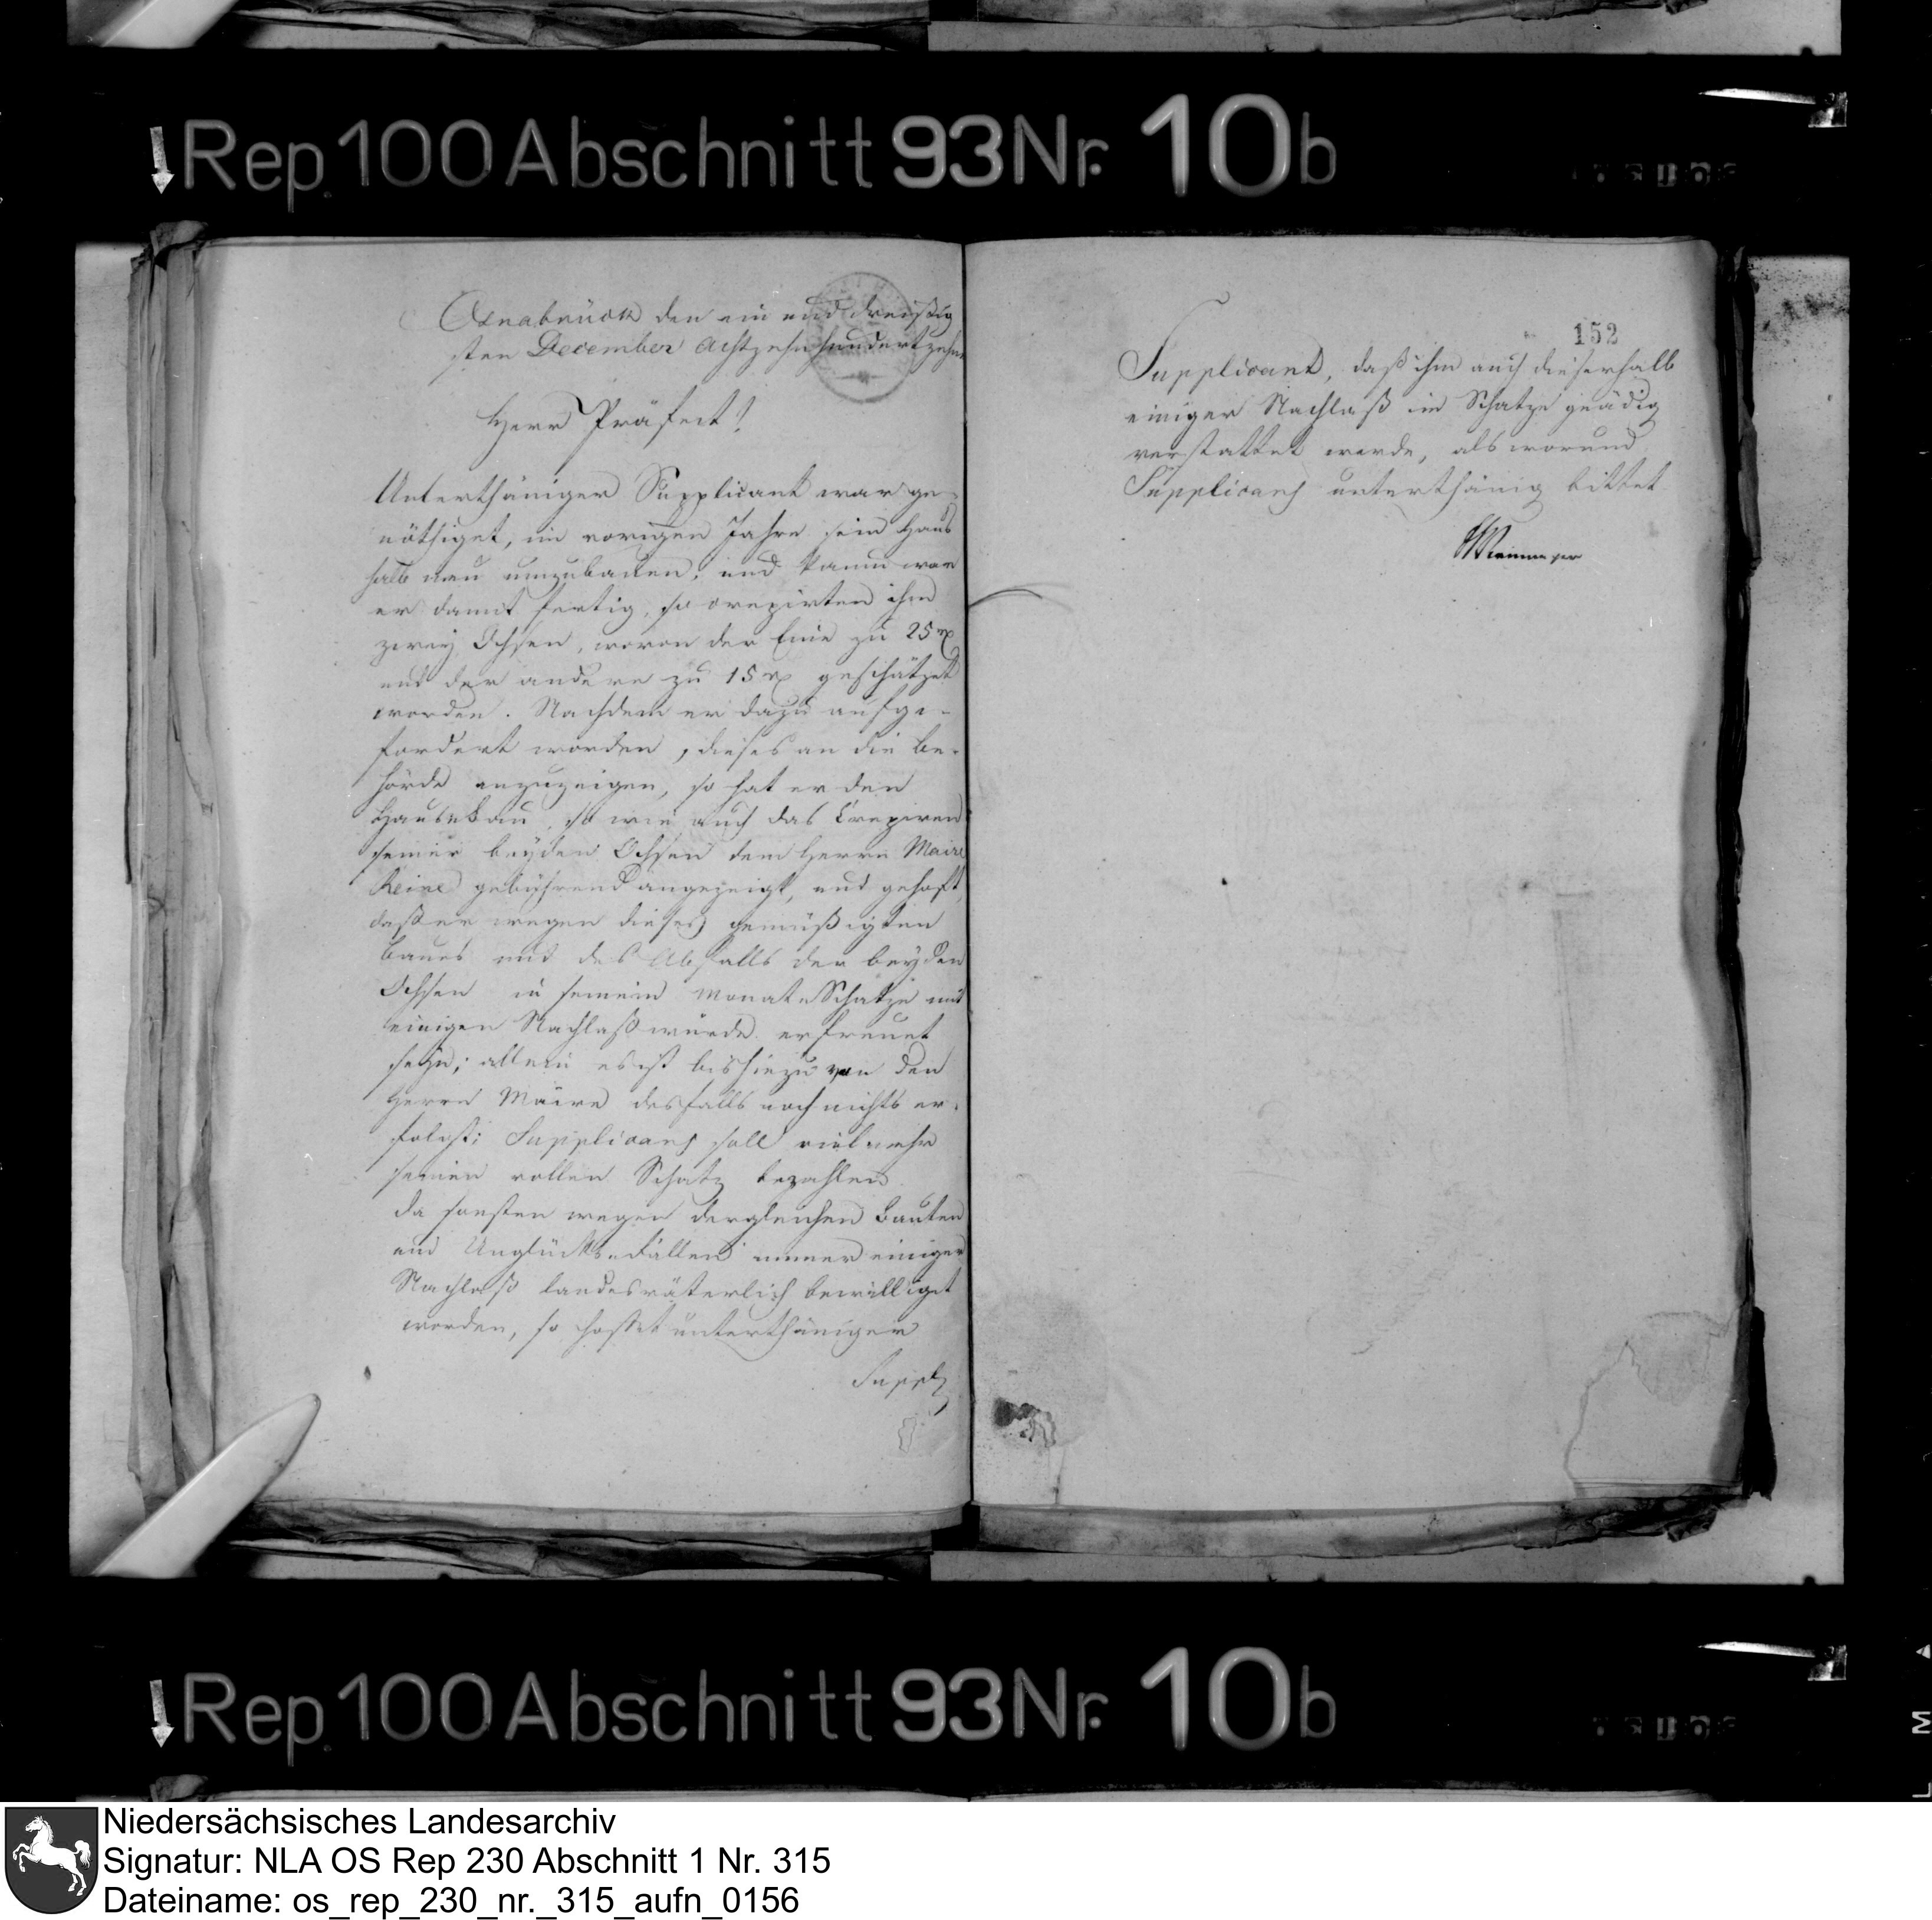 Rep 100 Abschnitt 93 Nr. 10b
Osnabrück den ein und dreißig
sten December Achtzehnhundertzehn
Herr Präfect!
Unterthäniger Supplicant war ge-
nöthiget, im vorigen Jahre sein Haus
halb neu umzubauen, und kaum war
er damit fertig, so crepirten ihm
zwey Ochsen, wovon der Eine zu 25 rp
und der andere zu 15 rp geschätzet
worden. Nachdem er dazu aufge-
fordert worden, dieses an die Be-
hörde anzuzeigen, so hat er den
Hausbau, so wie auch das Crepiren
seiner beyden Ochsen dem Herrn Maire
Reine gebührend angezeigt, und gehoft,
daß er wegen dieses gemüßigten
Baues und des Abfalls der beyden
Ochsen in seinem MonatsSchatze mit
einigen Nachlaß würde erfreuet
seyn; allein es ist bishiezu von den
Herrn Maire desfalls noch nichts er-
folgt; Supplicans soll vielmehr
seinen vollen Schatz bezahlen.
Da sonsten wegen dergleichen Bauten
und Unglücksfällen immer einiger
Nachlaß landesväterlich bewilliget
worden, so hoffet unterthäniger
Suppl
152
Supplicant, daß ihm auch dieserhalb
einiger Nachlaß im Schatze gnädig
verstattet werde, als worum
Supplicans unterthänig bittet
Rep 100 Abschnitt 93 Nr. 10b
Niedersächsisches Landesarchiv
Signatur: NLA OS Rep 230 Abschnitt 1 Nr. 315
Dateiname: os_rep_230_nr._315_aufn_0156